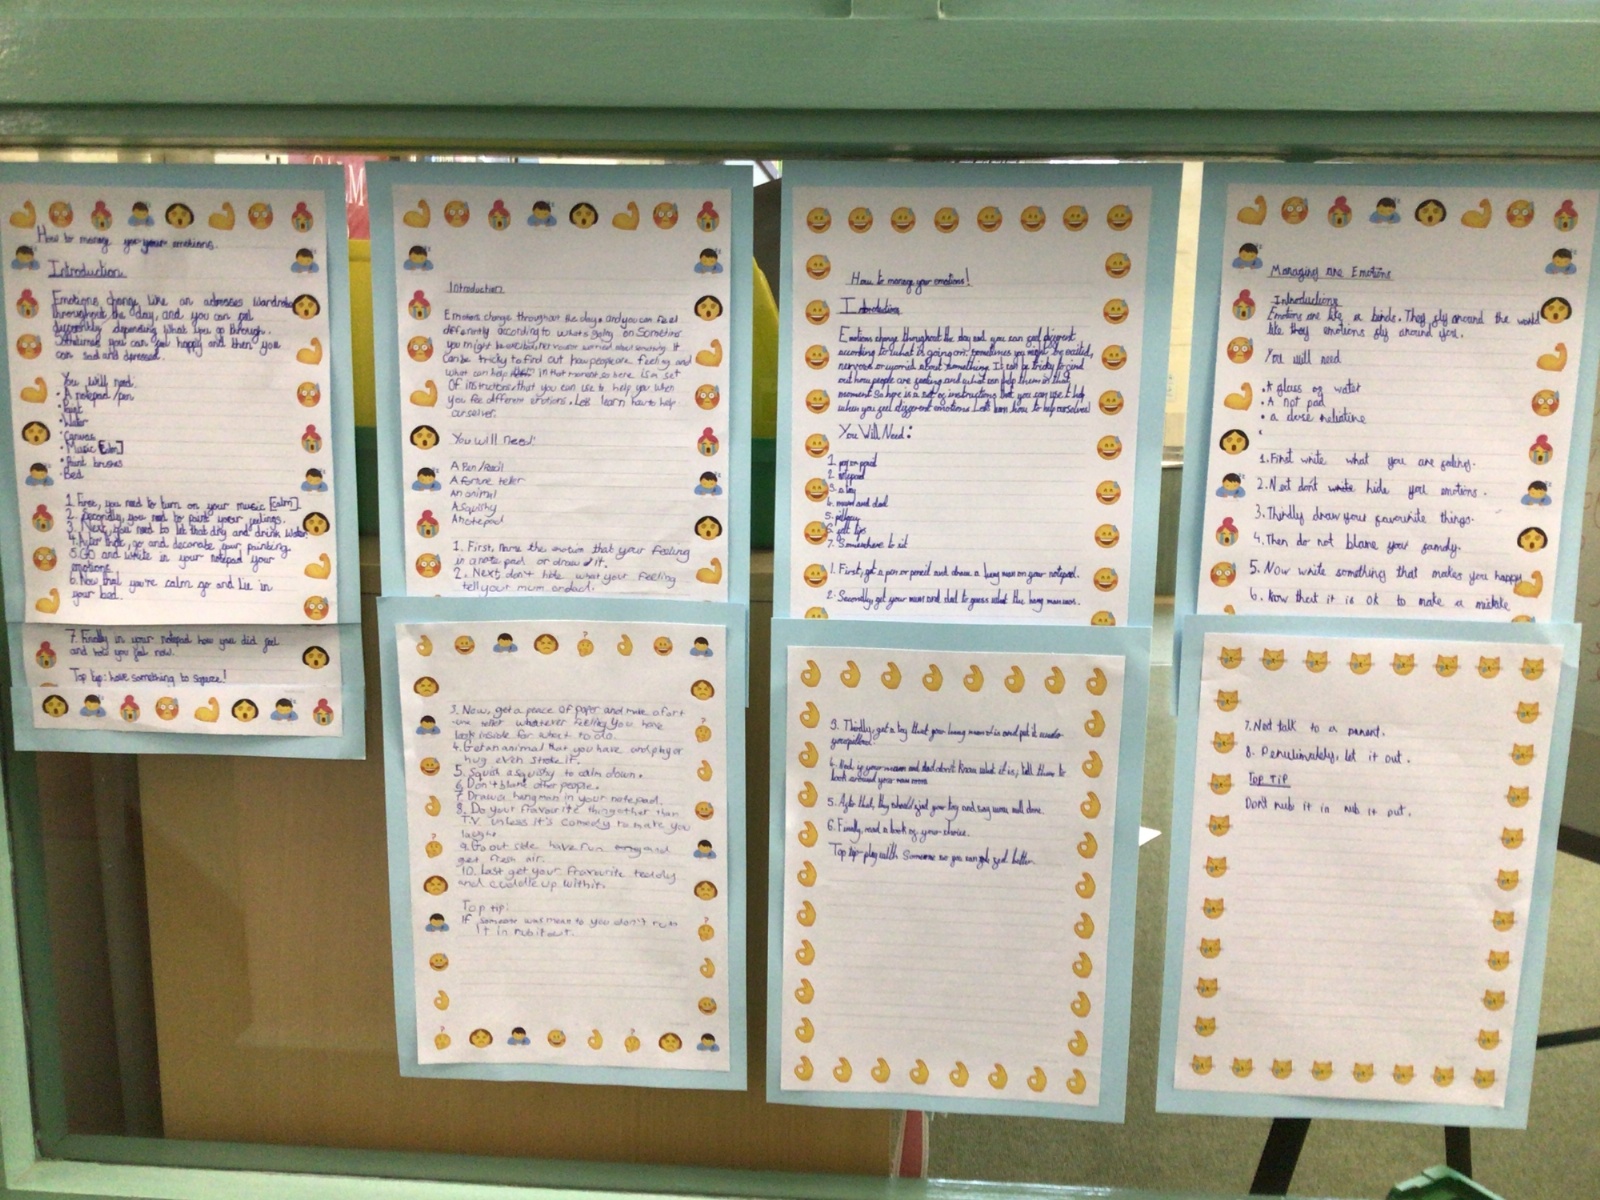 How to manage your emotions.
Introduction
Emotions change like an adresses wardrobe
throughout the day, and you can feel
depending what you go through.
Sometimes you can feel happy and then you
can sad and dpressed.
You will need:
• A notepad/pen
• Paint
• Water
• Canvas
• Music [calm]
• Paint brushes
• Bed
1. Firse, you need to turn on your music [calm].
2. Secondly, you need to paint your feelings.
3. Next, you need to let that dry and drink water
4. After that, go and decorate your painting.
5. GO and write in your notepad your
emotions.
6. Now that you're calm go and lie in
your bed.
7. Finally in your notepad how you did feel
and how you feel now.
Top tip: have something to squeze!
Introduction
Emotions change throughout the day and you can feel
differently according to whats going on. Sometims
you might be excited, nervous or worried about something. It
can be tricky to find out how people are feeling and
what can help in that moment so here is a set
of instructions that you can use to help you when
you feel different emotions. Lets learn how to help
ourselves.
You will need:
A Pen/Pencil
A fortune teller
An animal
A squishy
A notepad
1. First, name the emotion that your feeling
in a note pad or draw it.
2. Next don't hide what your feeling
tell your mum or dad.
3. Now, get a peace of paper and make a fort
-une teller whatever feeling you have
look inside for what to do.
4. Get an animal that you have and play or
hug even stroke it.
5. Squish a squishy to calm down.
6 Don't blame other people.
7 Draw a hangman in your notepad.
8. Do your fravourite thing other than
T.V. unless it's comedy to make you
laugh.
9. Go out side have fun and
get fresh air.
10. Last get your fravourite teddy
and cuddle up with it.
Top tip:
If someone was mean to you don't rub
it in rub it out.
How to manage your emotions!
Introduction
Emotions change throughout the day and you can feel different
according to what is going on. sometimes you might be excited,
nervous or worried about something. It can be tricky to find
out how people are feeling and what can help them in that
moment So here is a set of instructions that you can use to help
when you feel different emotions Lets learn how to help ourselves!
You Will Need:
1. pen or pencil
2. notepad
3. a toy
4. mum and dad
5. pillow
6. felt tips
7. Somewhere to sit
1. First, get a pen or pencil and draw a hang man on your notepad.
2. Secondly, get your mum and dad to guess what the hang man is.
3. Thirdly, get a toy that your hang man is and put it under
4. Next, if your mum and dad don't know what it is, tell them to
look around your
5. After that, they should find your toy and say well done.
6. Finally, read a book of your choice.
Top tip- play with someone so you can feel better.
Managing are Emotions
Introductions
Emotions are like a birds. They fly around the world
like they emotions fly around you.
You will need
• A glass of water
• A not pad
•
1. First write what you are feeling.
2. Next don't hide you emotions.
3. Thirdly draw your favourite things.
4. Then do not blame your family.
5. Now write something that makes you happy
6. Know that it is ok to make a mistake
7. Next talk to a parent.
8. Penultimately, let it out.
TOP TIP
Don't rub it in rub it out.